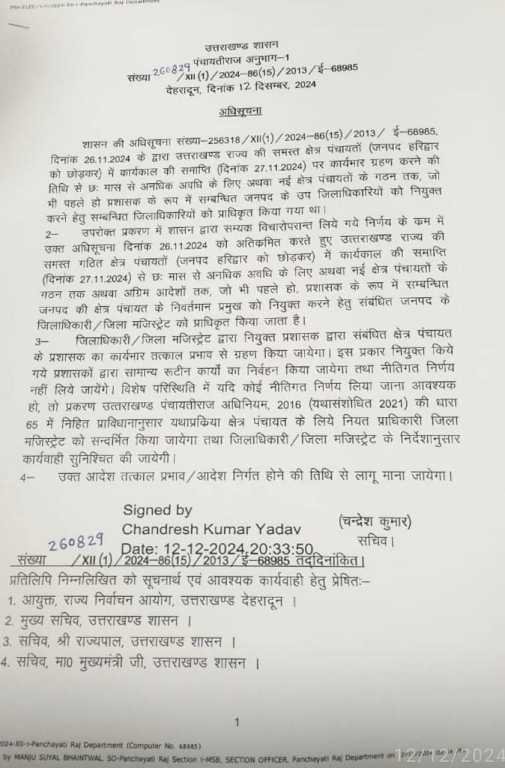 उत्तराखण्ड शासन
पंचायतीराज अनुभाग-1
संख्या 260829 /XII (1)/2024-86(15)/2013/ई-68985
देहरादून, दिनांक 12 दिसम्बर, 2024
अधिसूचना
शासन की अधिसूचना संख्या-256318/XII(1)/2024-86(15)/2013/ ई-68985,
दिनांक 26.11.2024 के द्वारा उत्तराखण्ड राज्य की समस्त क्षेत्र पंचायतों (जनपद हरिद्वार
को छोड़कर) में कार्यकाल की समाप्ति (दिनांक 27.11.2024) पर कार्यभार ग्रहण करने की
तिथि से छः मास से अनधिक अवधि के लिए अथवा नई क्षेत्र पंचायतों के गठन तक, जो
भी पहले हो प्रशासक के रूप में सम्बन्धित जनपद के उप जिलाधिकारियों को नियुक्त
करने हेतु सम्बन्धित जिलाधिकारियों को प्राधिकृत किया गया था।
2- उपरोक्त प्रकरण में शासन द्वारा सम्यक विचारोपरान्त लिये गये निर्णय के क्रम में
उक्त अधिसूचना दिनांक 26.11.2024 को अतिक्रमित करते हुए उत्तराखण्ड राज्य की
समस्त गठित क्षेत्र पंचायतों (जनपद हरिद्वार को छोड़कर) में कार्यकाल की समाप्ति
(दिनांक 27.11.2024) से छः मास से अनधिक अवधि के लिए अथवा नई क्षेत्र पंचायतों के
गठन तक अथवा अग्रिम आदेशों तक, जो भी पहले हो, प्रशासक के रूप में सम्बन्धित
जनपद की क्षेत्र पंचायत के निवर्तमान प्रमुख को नियुक्त करने हेतु संबंधित जनपद के
जिलाधिकारी/जिला मजिस्ट्रेट को प्राधिकृत किया जाता है।
3- जिलाधिकारी/जिला मजिस्ट्रेट द्वारा नियुक्त प्रशासक द्वारा संबंधित क्षेत्र पंचायत
के प्रशासक का कार्यभार तत्काल प्रभाव से ग्रहण किया जायेगा। इस प्रकार नियुक्त किये
गये प्रशासकों द्वारा सामान्य रूटीन कार्यों का निर्वहन किया जायेगा तथा नीतिगत निर्णय
नहीं लिये जायेंगे। विशेष परिस्थिति में यदि कोई नीतिगत निर्णय लिया जाना आवश्यक
हो, तो प्रकरण उत्तराखण्ड पंचायतीराज अधिनियम, 2016 (यथासंशोधित 2021) की धारा
65 में निहित प्राविधानानुसार यथाप्रक्रिया क्षेत्र पंचायत के लिये नियत प्राधिकारी जिला
मजिस्ट्रेट को सन्दर्भित किया जायेगा तथा जिलाधिकारी/जिला मजिस्ट्रेट के निर्देशानुसार
कार्यवाही सुनिश्चित की जायेगी।
4- उक्त आदेश तत्काल प्रभाव/आदेश निर्गत होने की तिथि से लागू माना जायेगा।
Signed by
Chandresh Kumar Yadav
(चन्द्रेश कुमार)
Date: 12-12-2024 20:33:50
सचिव।
संख्या 260829 /XII (1)/2024-86(15)/2013/ई-68985 तद्दिनांकित।
प्रतिलिपि निम्नलिखित को सूचनार्थ एवं आवश्यक कार्यवाही हेतु प्रेषितः-
1. आयुक्त, राज्य निर्वाचन आयोग, उत्तराखण्ड देहरादून ।
2. मुख्य सचिव, उत्तराखण्ड शासन ।
3. सचिव, श्री राज्यपाल, उत्तराखण्ड शासन ।
4. सचिव, मा0 मुख्यमंत्री जी, उत्तराखण्ड शासन ।
1
Panchayati Raj Department (Computer No. 68985)
by MANJU SUYAL BHAINTWAL, SO-Panchayati Raj Section 1-MSB, SECTION OFFICER, Panchayati Raj Department on
12/12/2024